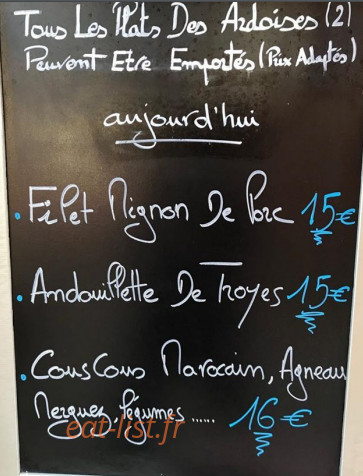 Tous Les Plats Des Ardoises (2)
Peuvent Etre Emportés (Prix Adaptés)
aujourd'hui
. Filet Mignon De Porc 15€
. Andouillette De Troyes 15€
. CousCous Marocain, Agneau
Merguez, légumes ..... 16€
eat-list.fr